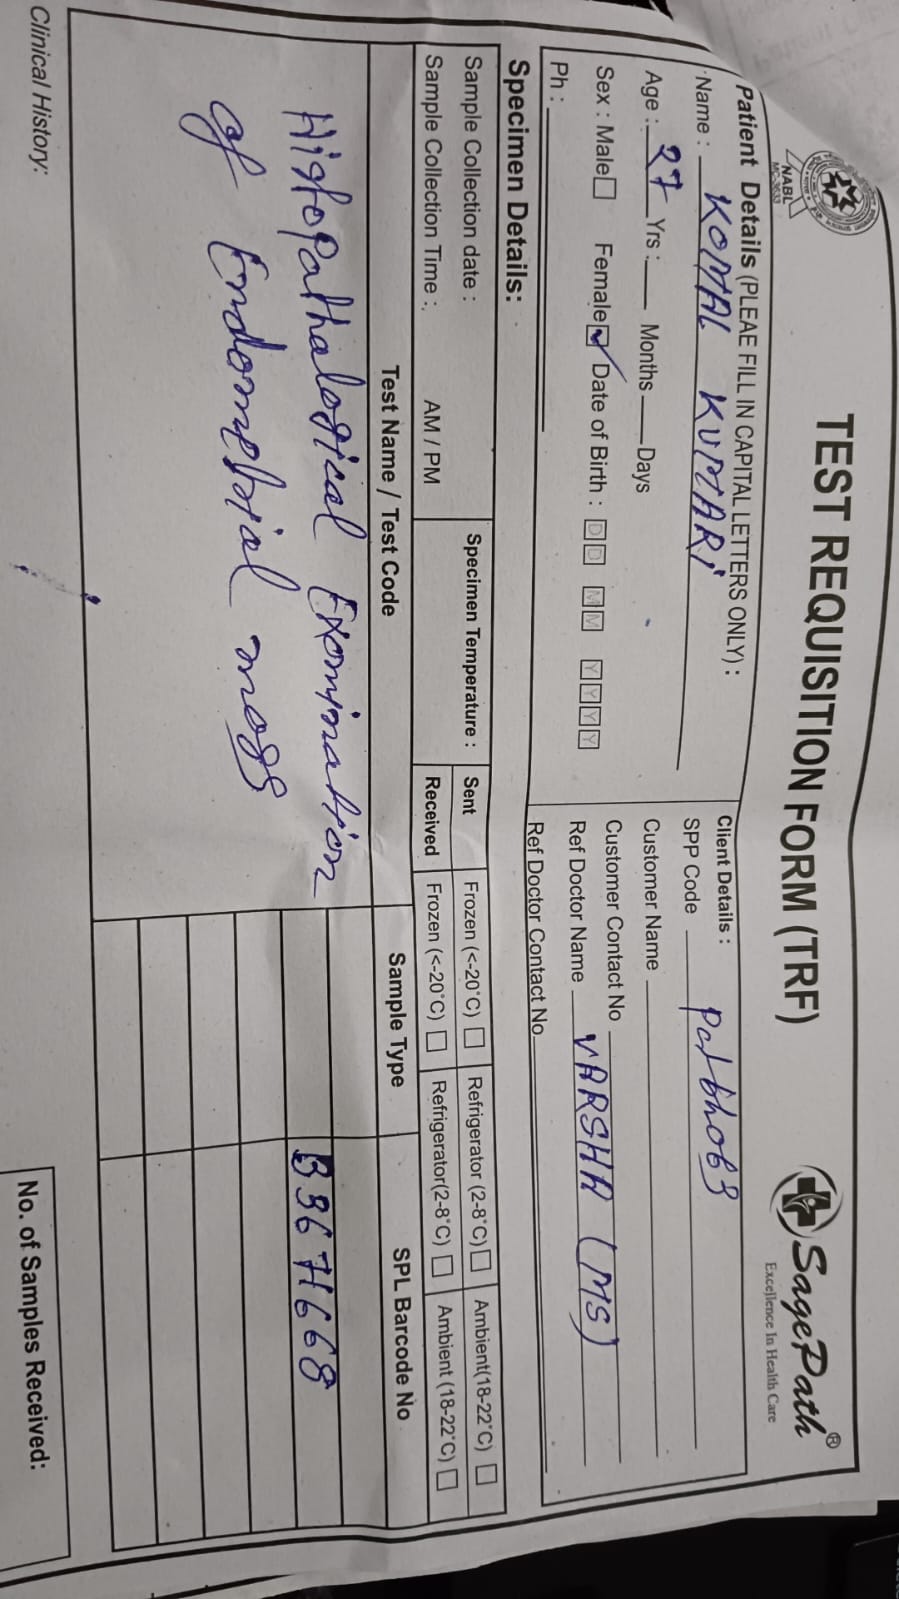 TEST REQUISITION FORM (TRF)
NABL
MC-3633
SagePath®
Excellence In Health Care
Patient Details (PLEAE FILL IN CAPITAL LETTERS ONLY) :
Name : KOMAL KUMARI
Age : 27 Yrs : Months Days
Sex : Male Female ✓ Date of Birth : D D M M Y Y Y Y
Ph :
Client Details :
SPP Code
Customer Name
Customer Contact No
Ref Doctor Name VARSHA (MS)
Ref Doctor Contact No
Specimen Details:
Sample Collection date :
Sample Collection Time : AM / PM
Specimen Temperature :
Sent Frozen (<-20°C) Refrigerator (2-8°C) Ambient(18-22°C)
Received Frozen (<-20°C) Refrigerator(2-8°C) Ambient (18-22°C)
Test Name / Test Code Sample Type SPL Barcode No
Histopathalogical Examination
of Endometrial
Clinical History:
No. of Samples Received: